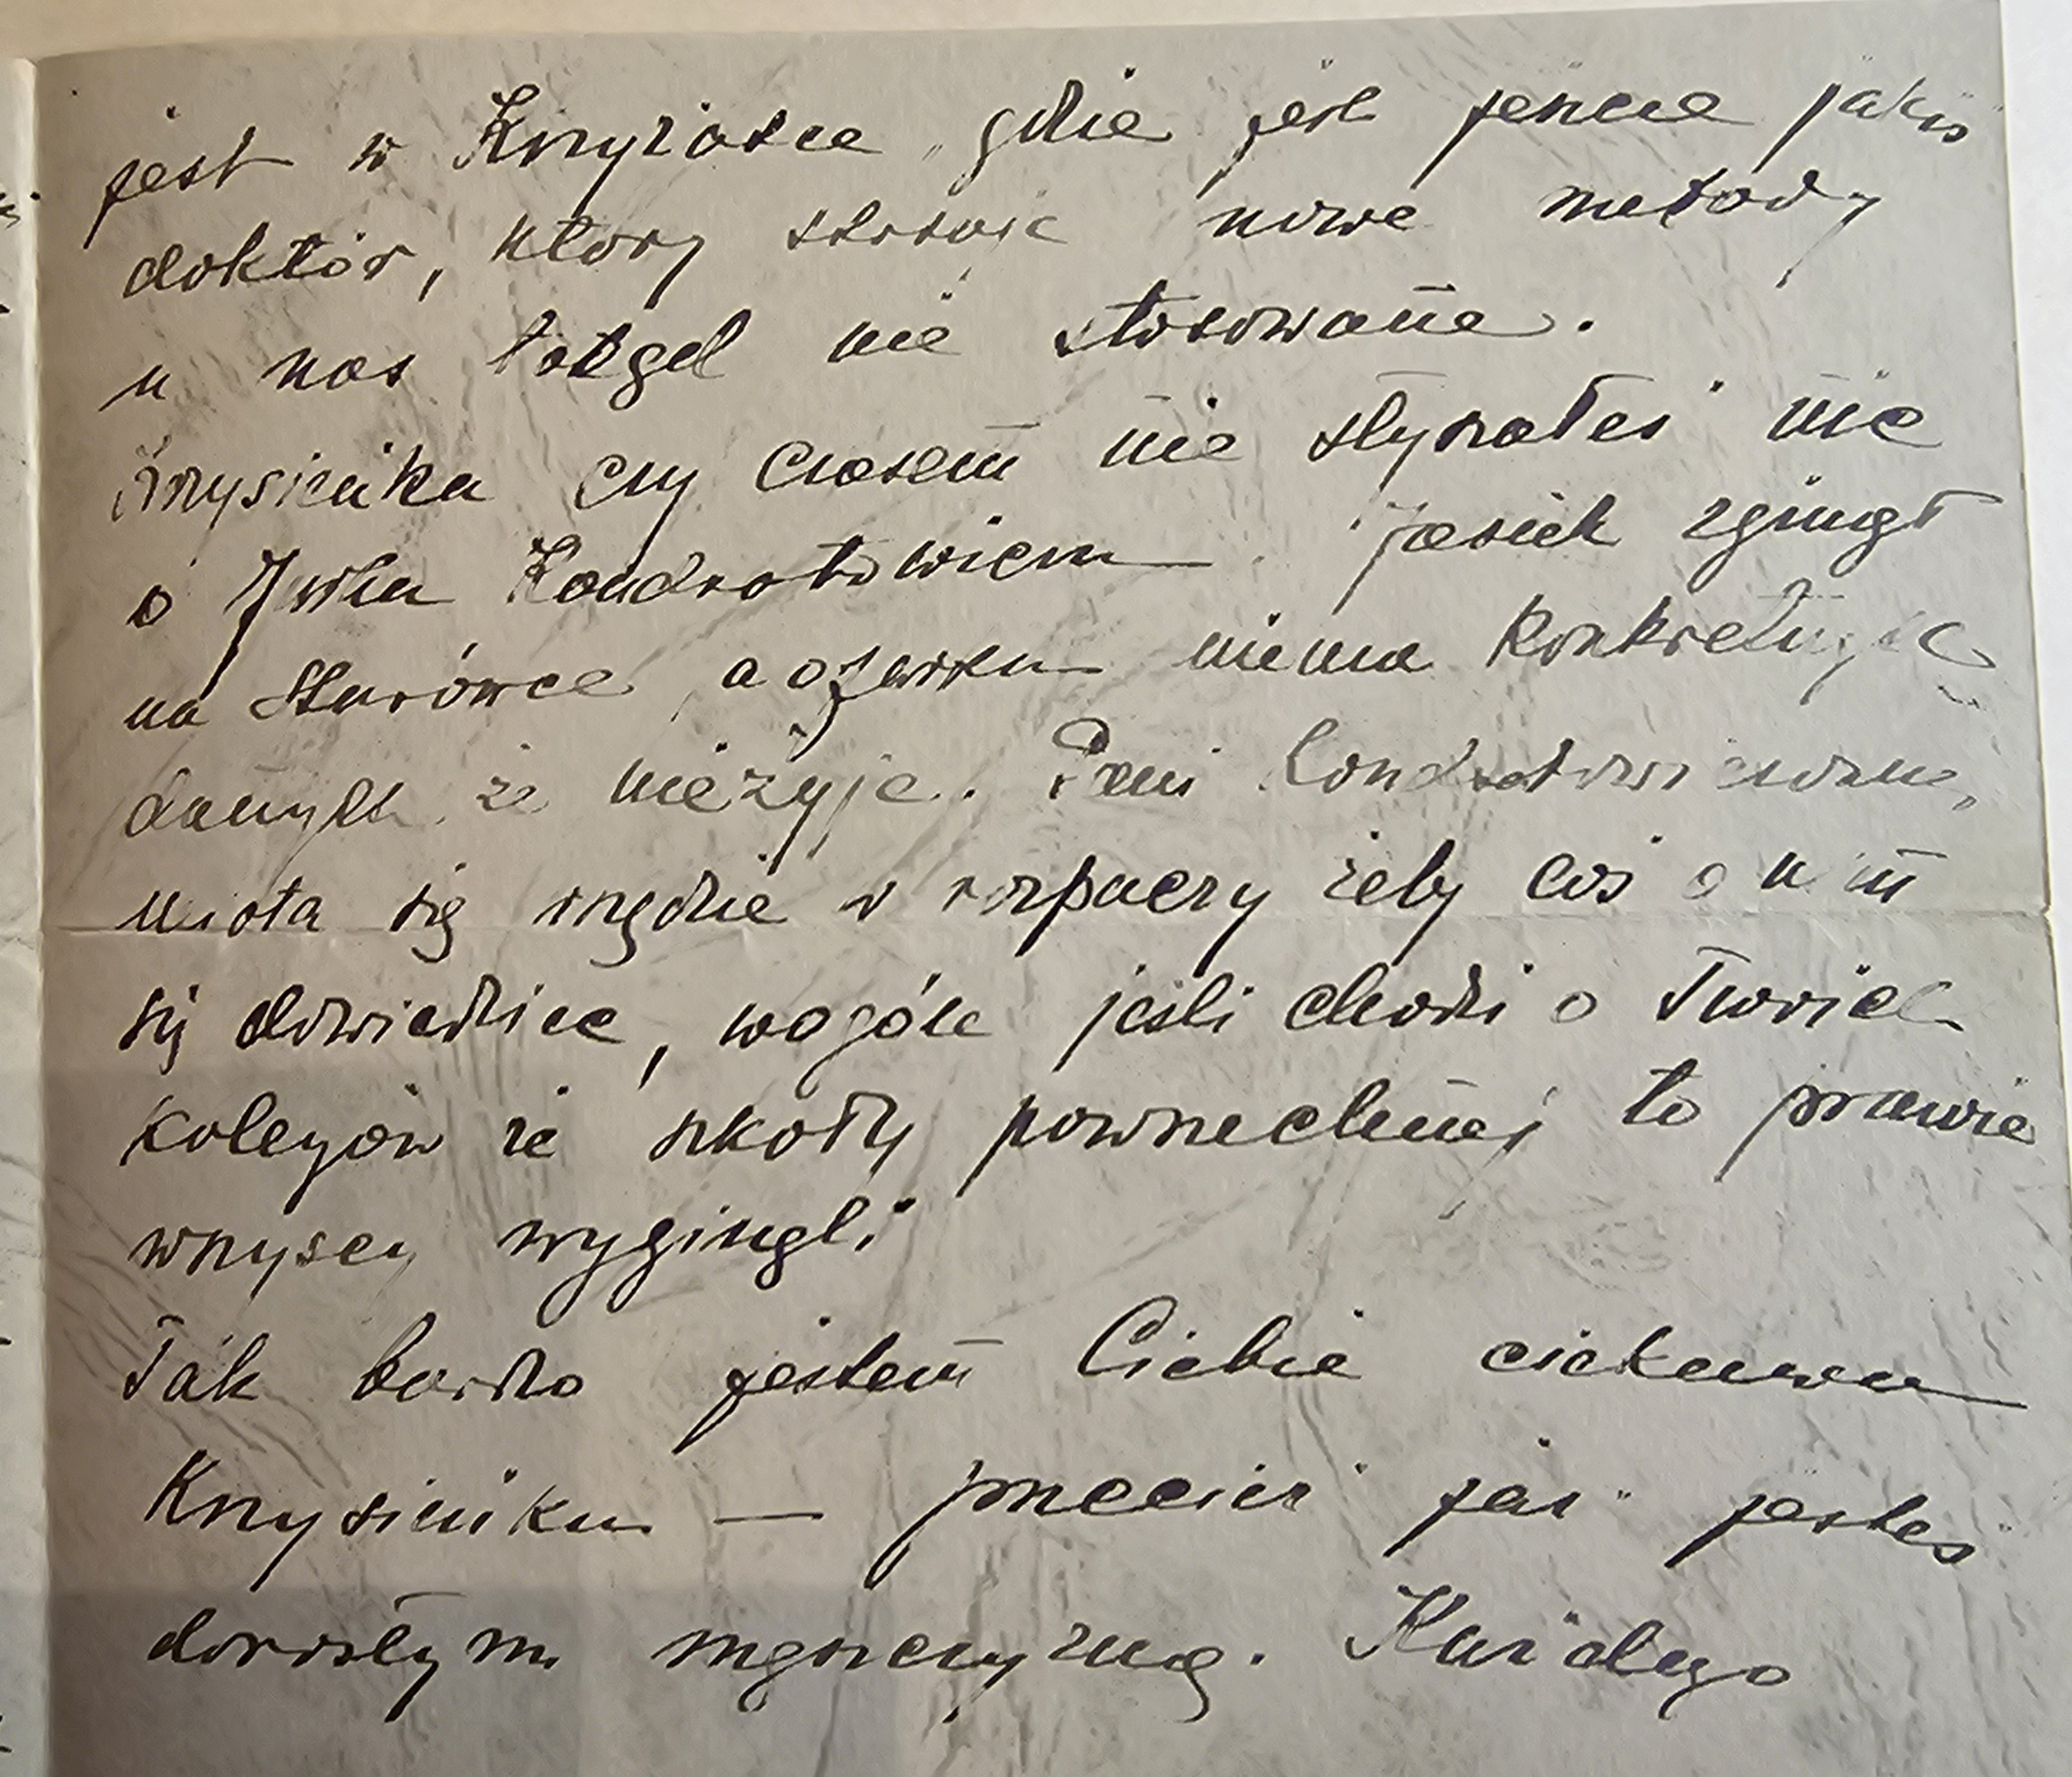 jest w gdzie jest jeszcze jakiś
doktór, który stosuje nowe metody
u nas dotąd nie stosowane.
Krzysieńku czy czasem nie słyszałeś nic
o Jurku Kondratowiczu. Jasiek zginął
na Starówce, a o Jurku niema konkretnych
danych że nieżyje. Pani Kondratowiczowa,
miota się wszędzie w rozpaczy żeby coś o nim
się dowiedzieć, wogóle jeśli chodzi o Twoich
kolegów ze szkoły powszechnej to prawie
wszyscy wyginęli
Tak bardzo jestem Ciebie ciekawa
Krzysieńku — przecież już jesteś
dorosłym mężczyzną. Każdego